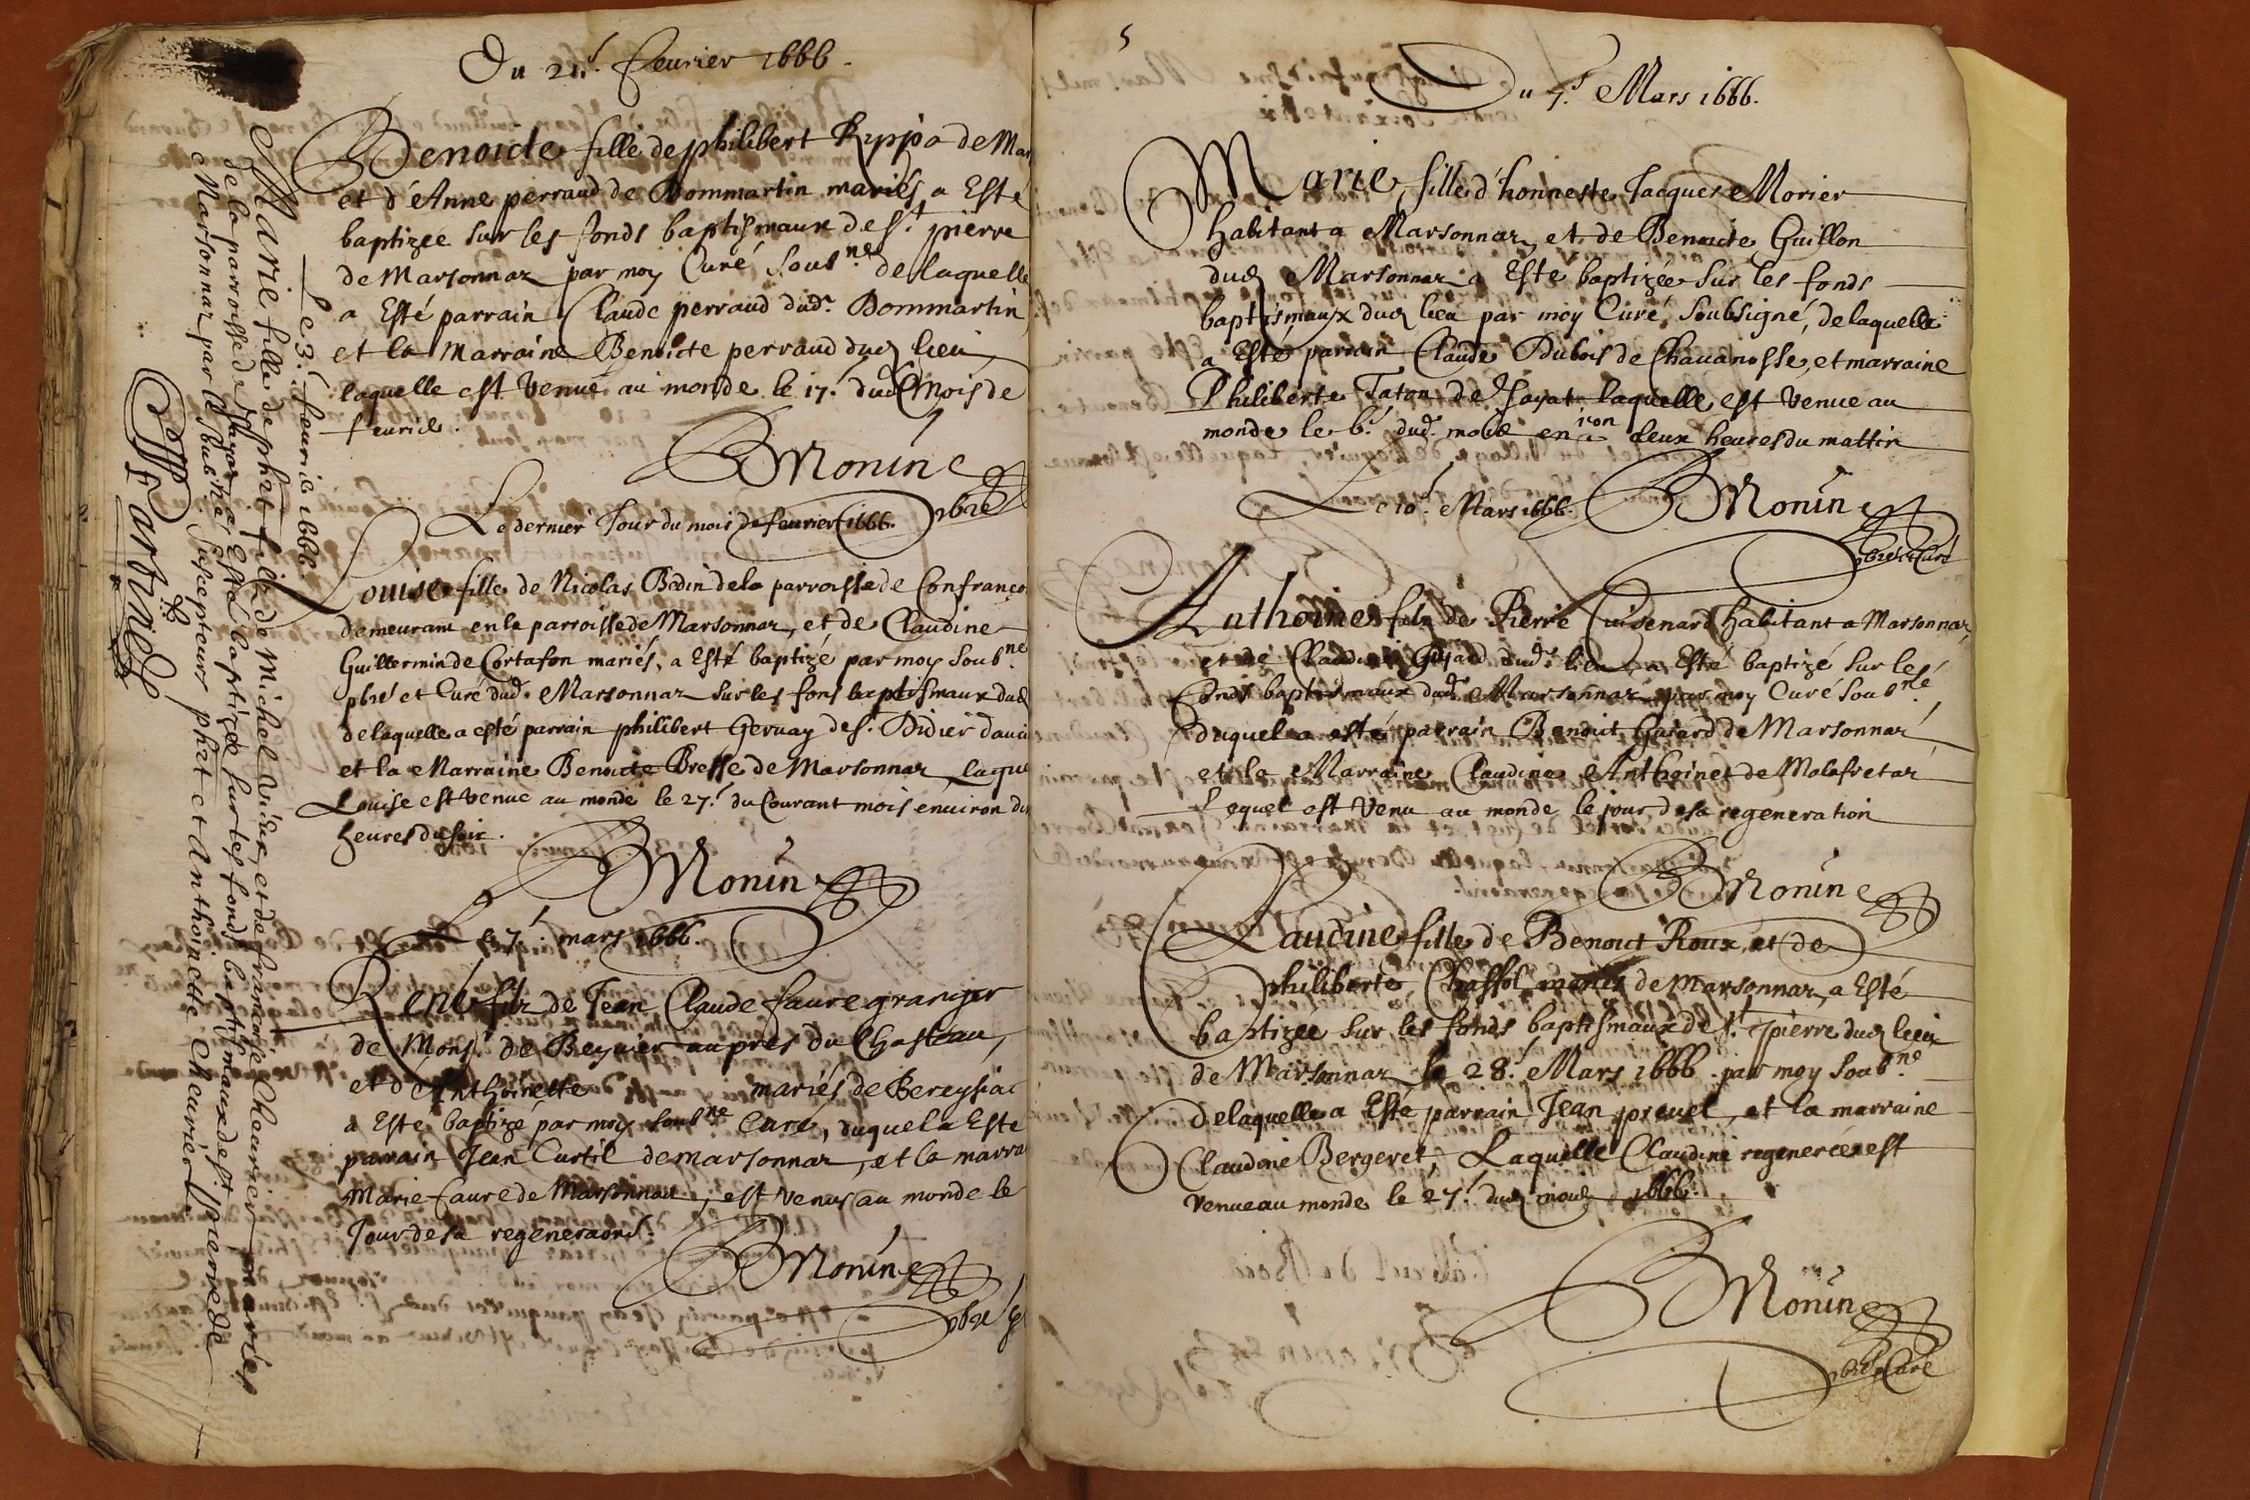 Du 21.e feurier 1666.
Benoicte fille de philibert de Mar
et d'Anne perraud de Dommartin mariés a Esté
baptizee sur les fonds baptismaux de St. pierre
de Marsonnaz par moy Curé soubne. de laquelle
a Esté parrain Claude perraud dud. Dommartin
et la Marraine Benoicte perraud dud lieu
laquelle est venue au monde le 17.e dud mois de
feurier.
BMonin
pbre
Le dernier Jour du mois de feurier 1666.
Louise fille de Nicolas Bedin de la parroisse de Confranço
demeurant en la parroisse de Marsonnaz, et de Claudine
Guillermin de Cortafon mariés, a Esté baptizé par moy soubne.
pbre et Curé dud. Marsonnaz sur les fons baptismaux dud
de laquelle a esté parrain philibert Geruay de St. Didier d'auci
et la Marraine Benoicte Bresse de Marsonnaz, laque
Louise est venue au monde le 27.e du Courant mois enuiron di
heures du soir.
BMonin
Le 7.e mars 1666.
René filz de Jean Claude faure granger
de Monsr. de Beyuier aupres du Chasteau,
et d'Anthoinette mariés de Bereysia
a Esté baptizé par moy soubne Curé, duquel a Este
parrain Jean Curtil de marsonnaz, et la marra
Marie faure de Marsonnaz, est venus au monde le
Jour de sa regeneraon.
BMonin
pbre
Le 3.e feurier 1666.
Marie fille de phet filz de Michel et de françoise Cheurier mariés
de la parroisse de Jayat a Esté baptizée sur les fonds baptismaux de St. pierre de
Marsonnaz par le soubne. Susepteurs phet et Anthoinette Cheurier.
5
Du 7.e Mars 1666.
Marie, fille d'honneste Jacques Morier
habitant a Marsonnaz, et de Benoicte Guillon
dud Marsonnaz a Este baptizée sur les fonds
baptismaux dud lieu par moy Curé soubsigné, de laquelle
a Esté parrain Claude Dubois de Chauanosse, et marraine
Philiberte Taton de Jayat laquelle est venue au
monde le 6.e dud. mois en iron deux heures du mattin
BMonin
pbre et Curé
Le 10.e Mars 1666.
Anthoine filz de Pierre Cuisenard habitant a Marsonnaz,
et de Claudine dud. lieu, a Esté baptizé sur les
fonds baptismaux dud. Marsonnaz par moy Curé soubne.
duquel a esté parrain Benoict Gaiard de Marsonnaz
et la Marraine Claudine Anthoinet de Malafretaz
Lequel est venu au monde le jour de sa regeneration
BMonin
Claudine fille de Benoict Roux, et de
philiberte Chassol mariés de Marsonnaz, a Esté
baptizee sur les fonds baptismaux de St. pierre dud lieu
de Marsonnaz le 28.e Mars 1666. par moy soubne.
de laquelle a Esté parrain Jean preuel, et la marraine
Claudine Bergeret, Laquelle Claudine regenerée est
venue au monde le 27.e dud mois 1666.
BMonin
pbre et Curé